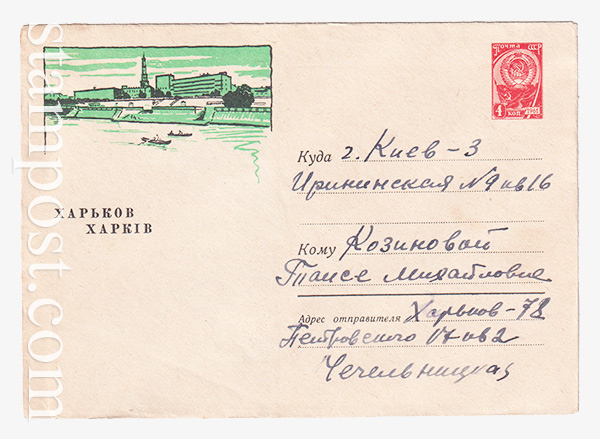 Почта СССР
4 коп 1961
Куда г. Киев-3
Ирининская №9 кв 16
ХАРЬКОВ
ХАРКІВ
Кому Козиновой
Таисе Михайловне
Адрес отправителя Харьков-78
Петровского 17 кв 2
Чечельницкая
stampost.com